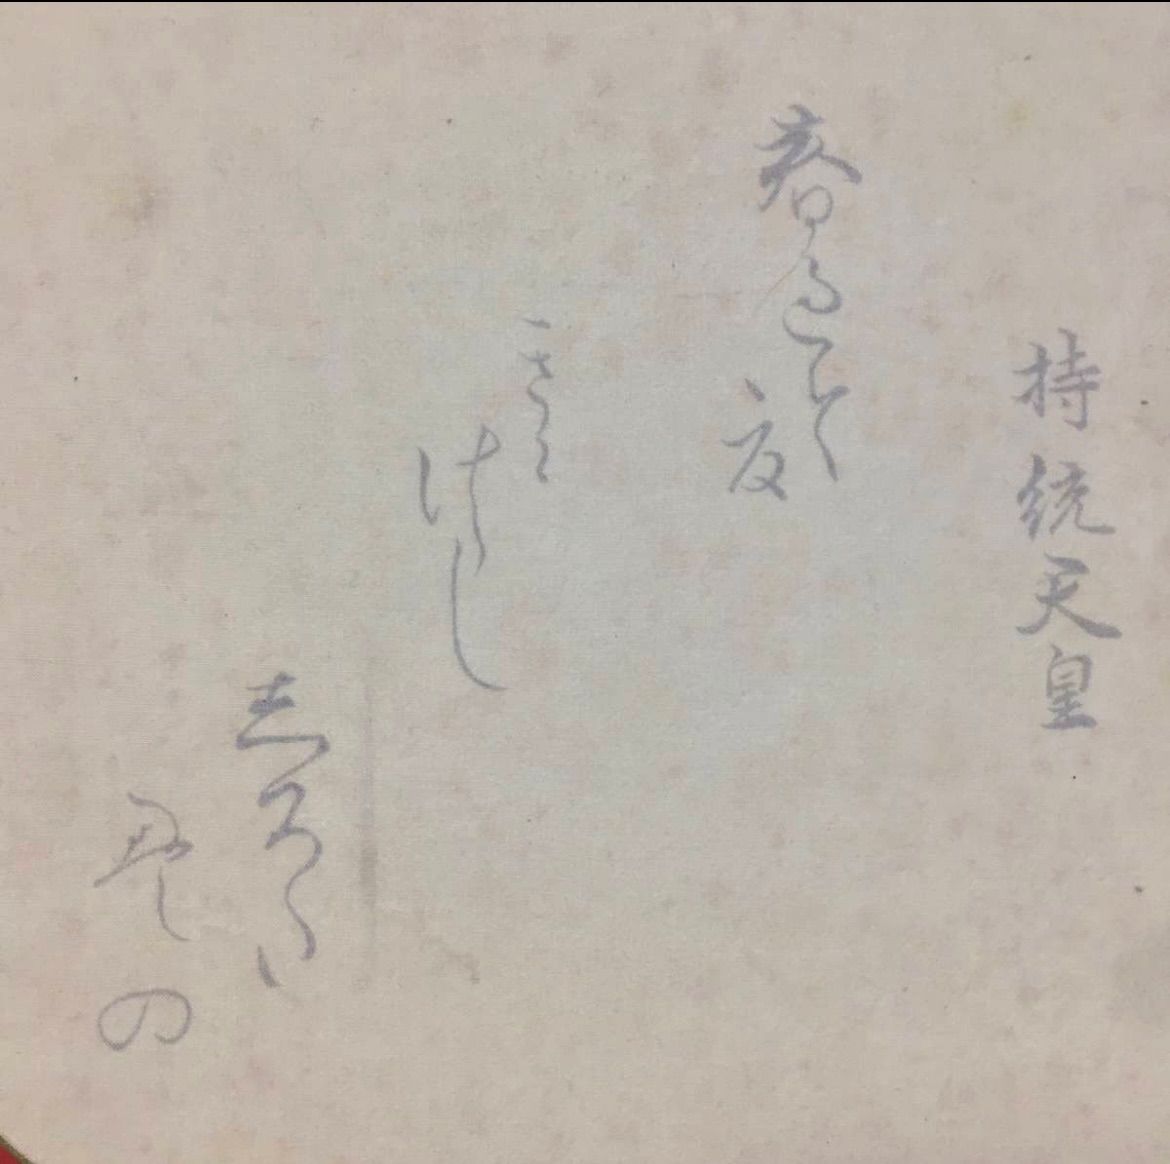 持統天皇
春過きて
夏
きに
けらし
志ろた
への